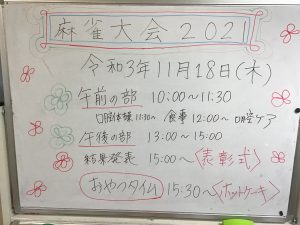 麻雀大会 202
令和3年11月18日(木)
午前の部 10:00〜11:30
口腔体操 11:30〜 食事 12:00〜 口腔ケア
午後の部 13:00〜15:00
結果発表 15:00〜〈表彰式〉
おやつタイム 15:30〜〈ホットケーキ〉